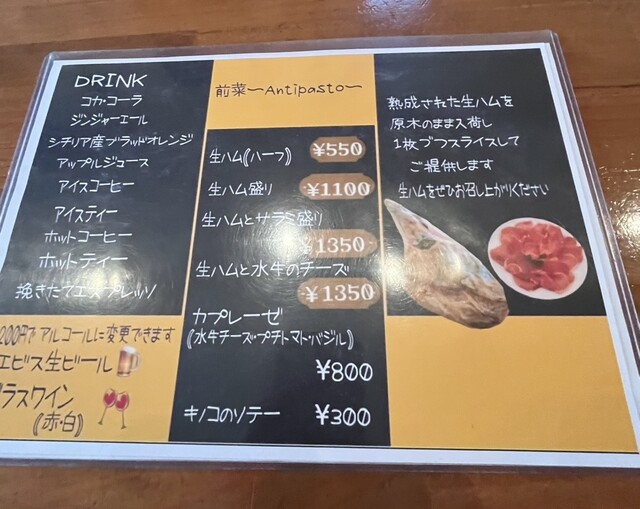 DRINK
コカ・コーラ
ジンジャーエール
シチリア産ブラッドオレンジ
アップルジュース
アイスコーヒー
アイスティー
ホットコーヒー
ホットティー
挽きたてエスプレッソ
200円でアルコールに変更できます
エビス生ビール
ラスワイン
(赤・白)
前菜〜Antipasto〜
生ハム(ハーフ) ¥550
生ハム盛り ¥1100
生ハムとサラミ盛り
¥1350
生ハムと水牛のチーズ
¥1350
カプレーゼ
(水牛チーズ・プチトマト・バジル)
¥800
キノコのソテー ¥300
熟成された生ハムを
原木のまま入荷し
1枚づつスライスして
ご提供します
生ハムをぜひお召し上がりください